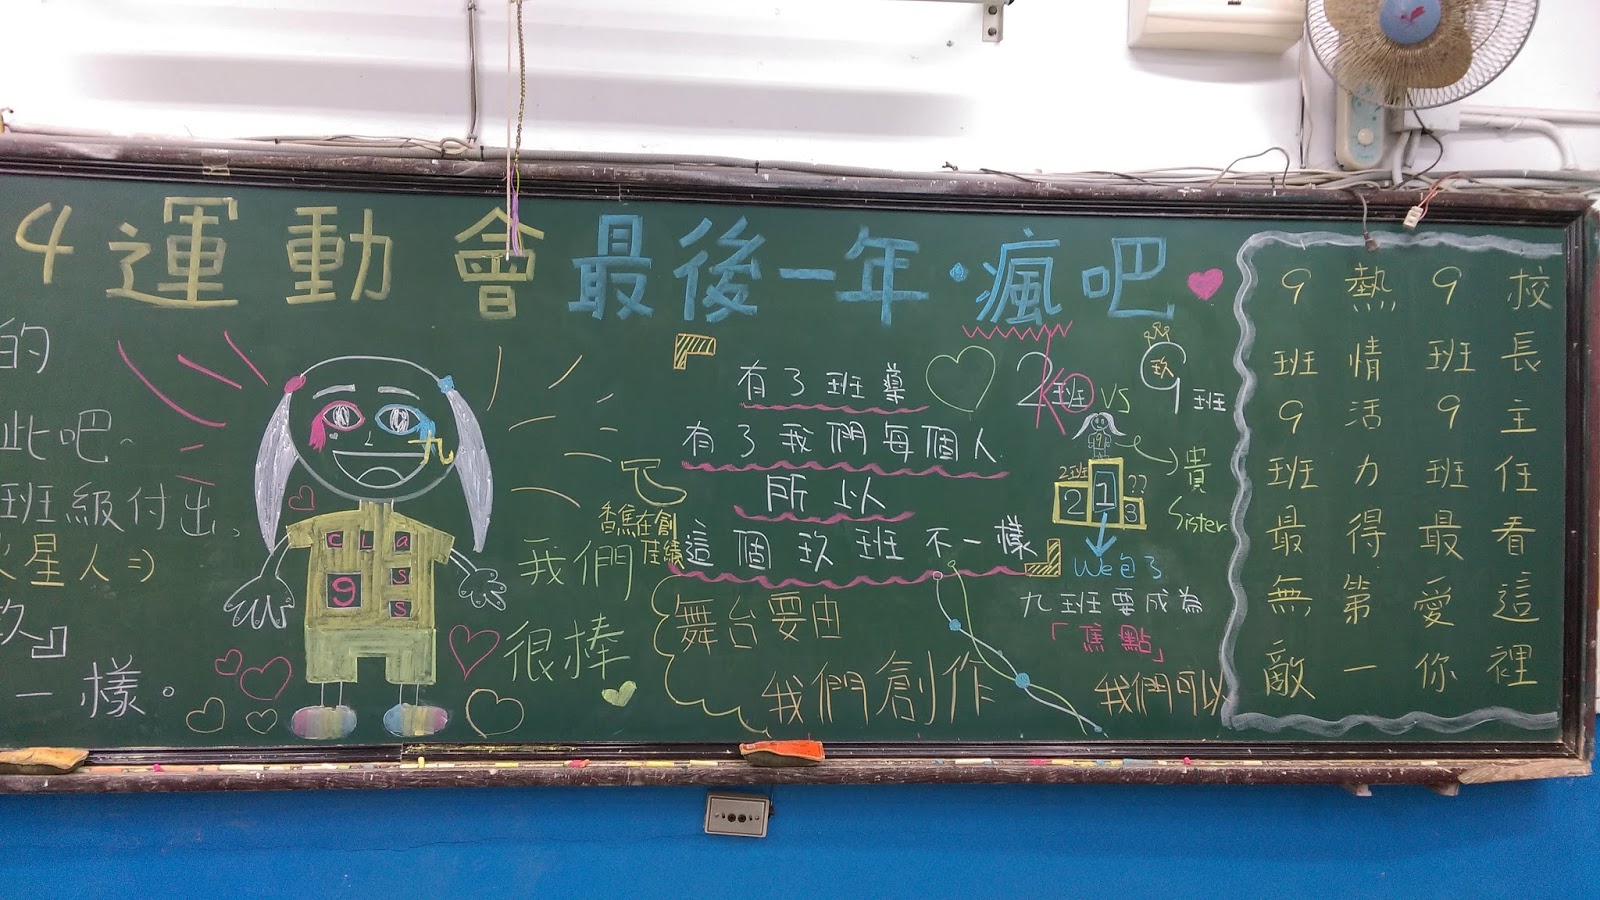 4運動會最後一年·瘋吧
的
此吧
班級付出
火星人=)
玖』
一樣。
九
CLaSS
9
我們
很棒
香蕉在創
佳績
有了班導
有了我們每個人
所以
這個玖班不一樣
舞台要由
我們創作
2班 VS 9班
KO
玖
9
2班
??
2 1 3
貴
Sister
We包了
九班要成為
「焦點」
我們可以
校長主任看這裡
9班9班最愛你
熱情活力得第一
9班9班最無敵